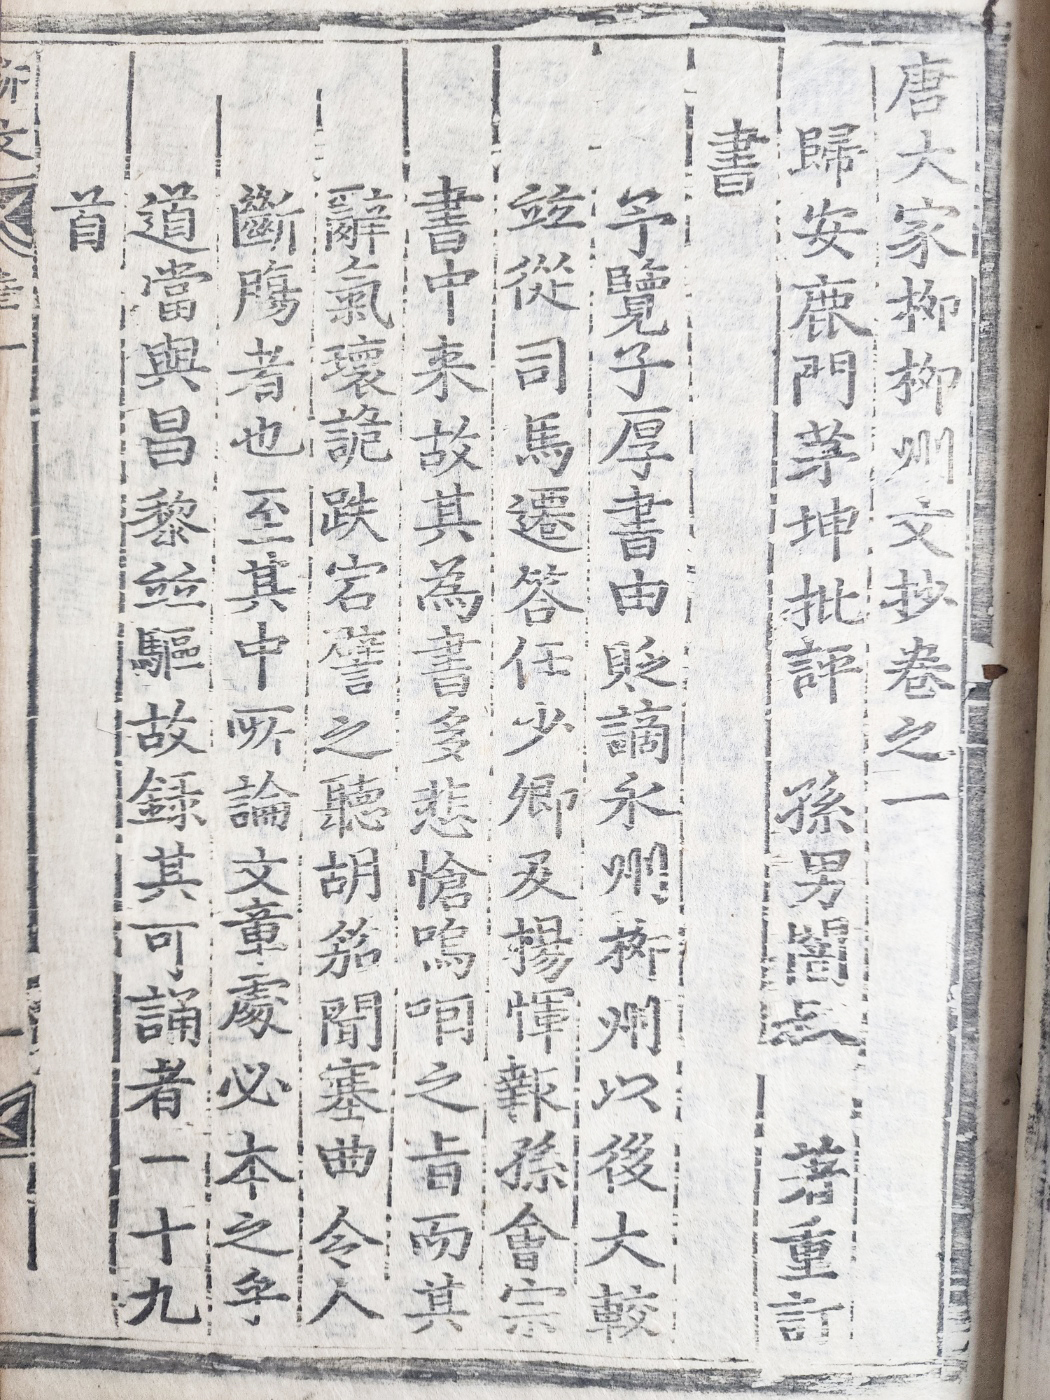 唐大家柳柳州文抄卷之一
歸安鹿門茅坤批評 孫男闇叔 著重訂
書
予覽子厚書由貶謫永州柳州以後大較
並從司馬遷答任少卿及楊惲報孫會宗
書中来故其為書多悲愴嗚咽之旨而其
辭氣瓌詭跌宕譬之聽胡笳聞塞曲令人
斷膓者也至其中所論文章處必本之乎
道當與昌黎並驅故録其可誦者一十九
首
柳文 卷一